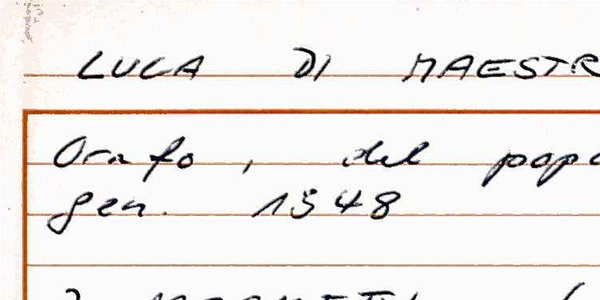 LUCA DI MAESTR
Orafo, del popo
gen. 1548